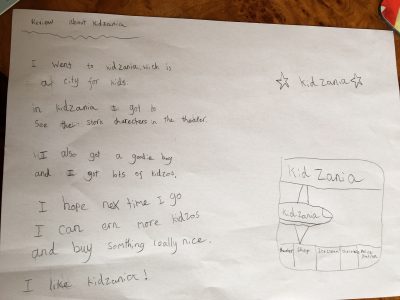 Review about kidzania
I went to kidzania wich is
a city for kids.
in kidzania I got to
see their story characters in the theater.
I also got a goodie bag
and I got lots of kidzos.
I hope next time I go
I can ern more kidzos
and buy somthing really nice.
I like kidzania!
kidzania
Kid Zania
Kidzania
Shop